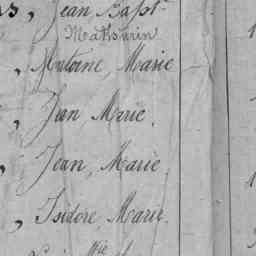 , Jean Bapt
Mathurin
, Antoine, Marie
, Jean Marie.
, Jean, Marie.
, Isidore, Marie.